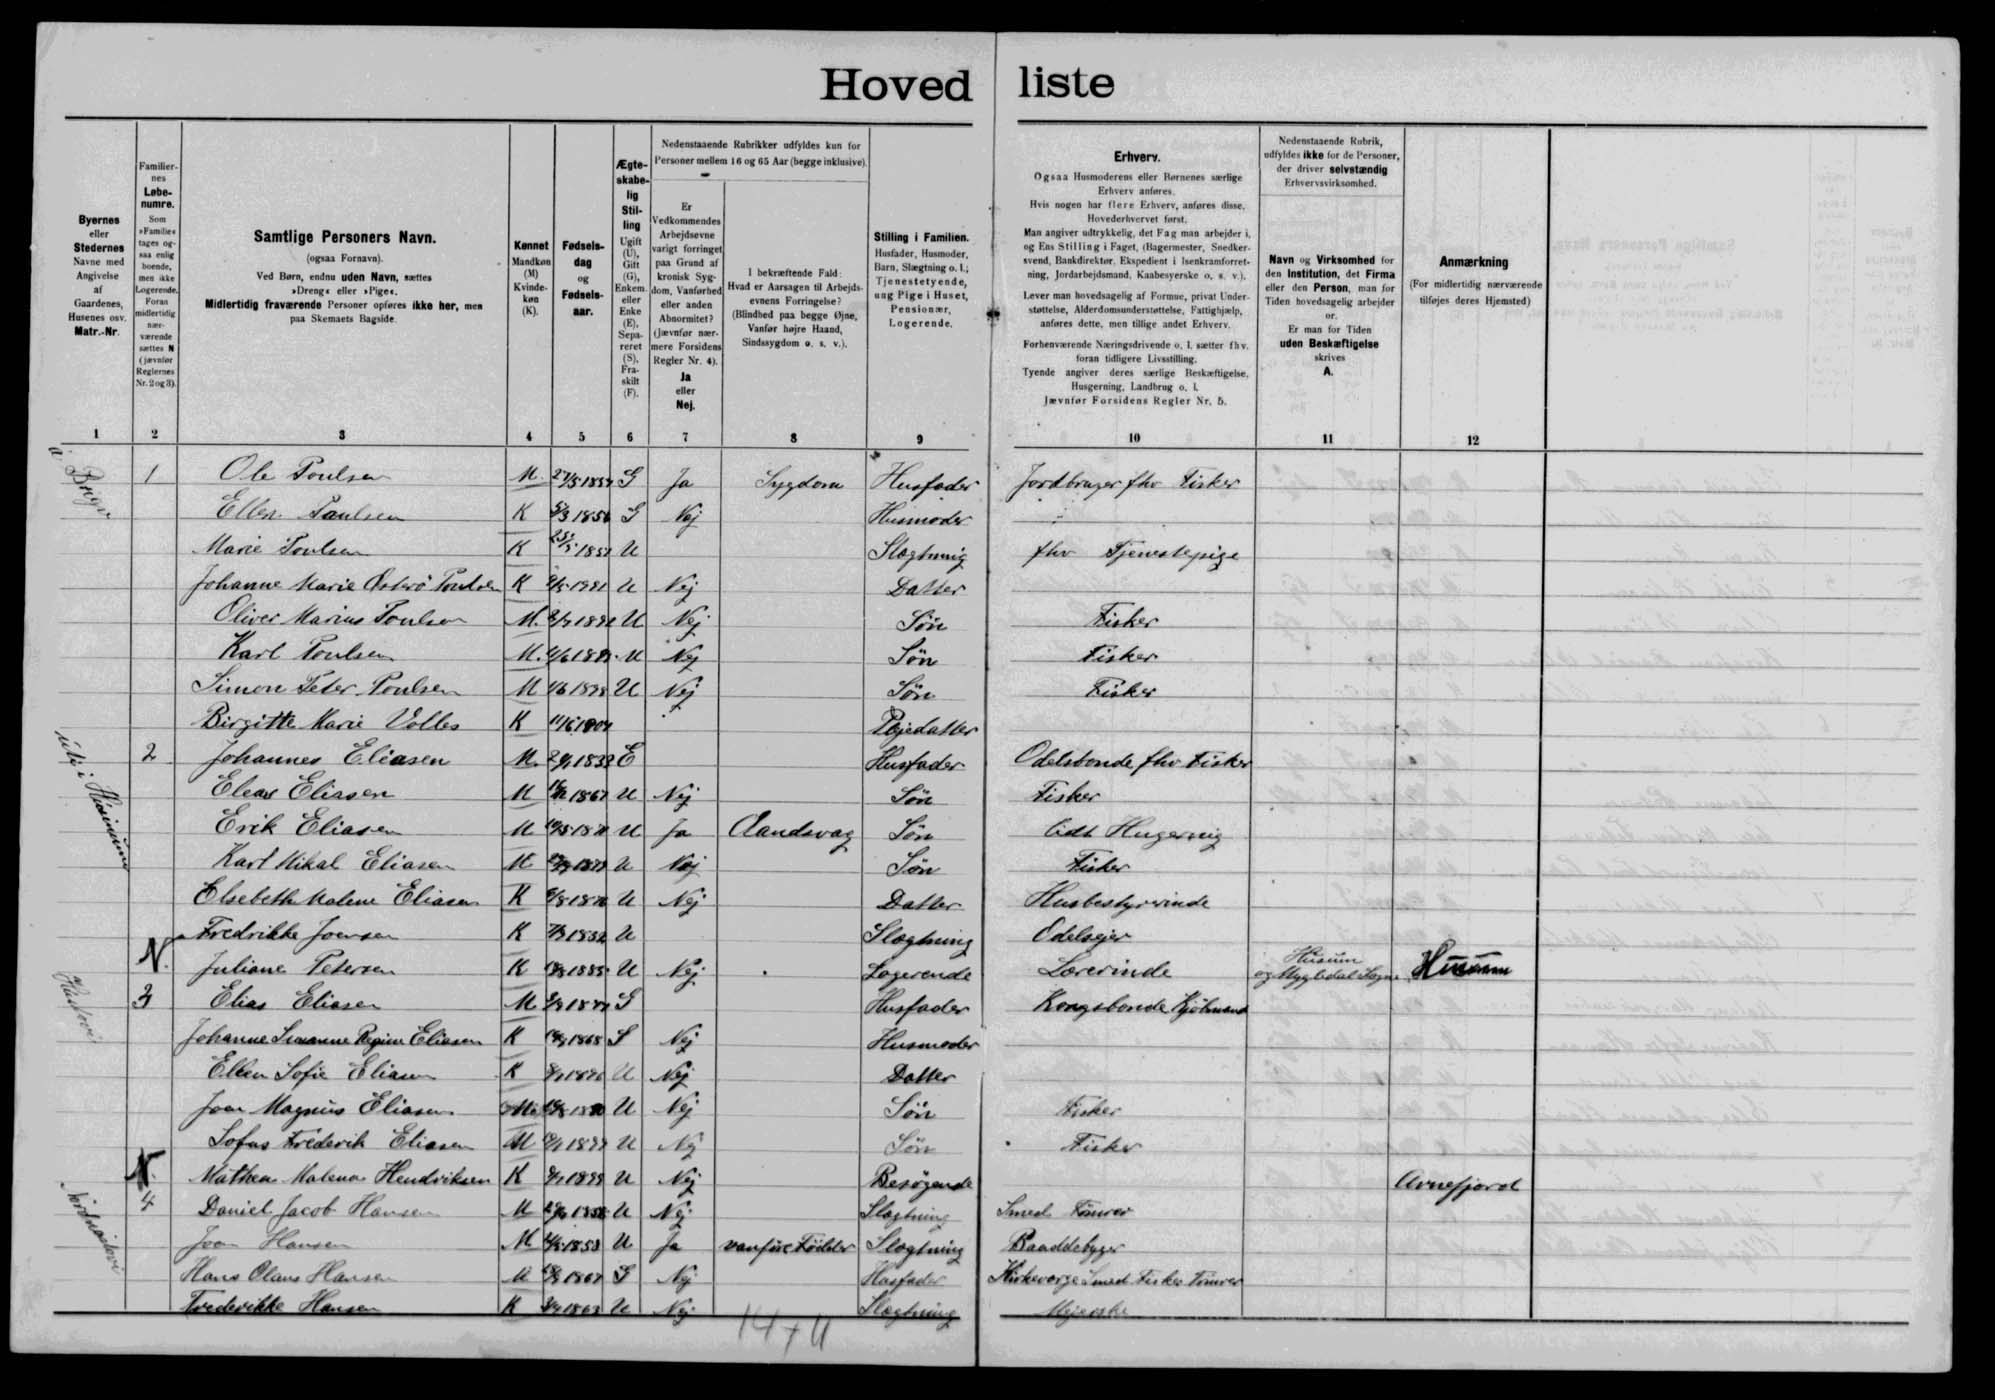 Hoved liste
Byernes
eller
Stedernes
Navne med
Angivelse
af
Gaardenes,
Husenes osv.
Matr.-Nr.
Familier-
nes
Løbe-
numre.
Som
»Familie«
tages og-
saa enlig
boende,
men ikke
Logerende.
Foran
midlertidig
nær-
værende
sættes N
(jævnfør
Reglernes
Nr. 2 og 3).
Samtlige Personers Navn.
(ogsaa Fornavn).
Ved Børn, endnu uden Navn, sættes
»Dreng« eller »Pige«.
Midlertidig fraværende Personer opføres ikke her, men
paa Skemaets Bagside.
Kønnet
Mandkøn
(M)
Kvinde-
køn
(K).
Fødsels-
dag
og
Fødsels-
aar.
Ægte-
skabe-
lig
Stil-
ling
Ugift
(U),
Gift
(G),
Enkem.
eller
Enke
(E),
Sepa-
reret
(S),
Fra-
skilt
(F).
Nedenstaaende Rubrikker udfyldes kun for
Personer mellem 16 og 65 Aar (begge inklusive).
Er
Vedkommendes
Arbejdsevne
varigt forringet
paa Grund af
kronisk Syg-
dom, Vanførhed
eller anden
Abnormitet?
(Jævnfør nær-
mere Forsidens
Regler Nr. 4).
Ja
eller
Nej.
I bekræftende Fald:
Hvad er Aarsagen til Arbejds-
evnens Forringelse?
(Blindhed paa begge Øjne,
Vanfør højre Haand,
Sindssygdom o. s. v.).
Stilling i Familien.
Husfader, Husmoder,
Barn, Slægtning o. l.;
Tjenestetyende,
ung Pige i Huset,
Pensionær,
Logerende.
Erhverv.
Ogsaa Husmoderens eller Børnenes særlige
Erhverv anføres.
Hvis nogen har flere Erhverv, anføres disse,
Hovederhvervet først.
Man angiver udtrykkelig, det Fag man arbejder i,
og Ens Stilling i Faget, (Bagermester, Snedker-
svend, Bankdirektør, Ekspedient i Isenkramforret-
ning, Jordarbejdsmand, Kaabesyerske o. s. v.).
Lever man hovedsagelig af Formue, privat Under-
støttelse, Alderdomsunderstøttelse, Fattighjælp,
anføres dette, men tillige andet Erhverv.
Forhenværende Næringsdrivende o. l. sætter fhv.
foran tidligere Livsstilling.
Tyende angiver deres særlige Beskæftigelse,
Husgerning, Landbrug o. l.
Jævnfør Forsidens Regler Nr. 5.
Nedenstaaende Rubrik,
udfyldes ikke for de Personer,
der driver selvstændig
Erhvervsvirksomhed.
Navn og Virksomhed for
den Institution, det Firma
eller den Person, man for
Tiden hovedsagelig arbejder
for.
Er man for Tiden
uden Beskæftigelse
skrives
A.
Anmærkning
(For midlertidig nærværende
tilføjes deres Hjemsted)
1 2 3 4 5 6 7 8 9 10 11 12
1 Ole Poulsen M. G Ja Sygdom Husfader Jordbruger fhv Fisker
Ellen Poulsen K 1856 G Nej Husmoder
Marie Poulsen K U Slægtning fhv Tjenestepige
Johanne Marie Østerø Poulsen K U Nej Datter
Oliver Marius Poulsen M. U Nej Søn Fisker
Karl Poulsen M. U Nej Søn Fisker
Simon Peter Poulsen M U Nej Søn Fisker
Birgitte Marie Volles K Plejedatter
2 Johannes Eliasen M. E Husfader Odelsbonde fhv Fisker
Elias Eliasen M 1867 U Nej Søn Fisker
Erik Eliasen M U Ja Aandsvag Søn lidt Husgerning
Karl Mikal Eliasen M U Nej Søn Fisker
Elsebeth Malene Eliasen K U Nej Datter Husbestyrerinde
Fredrikke Joensen K U Slægtning Odelsejer
N. Juliane Petersen K 1885 U Nej Logerende Lærerinde Husum og Mygledal Sogne Husum
3 Elias Eliasen M G Husfader Kongsbonde Kjøbmand
Johanne Susanne Regine Eliasen K 1868 G Nej Husmoder
Ellen Sofie Eliasen K U Nej Datter
Joen Magnus Eliasen M U Nej Søn Fisker
Sofus Frederik Eliasen M U Nej Søn Fisker
N. Mathea Malena Hendriksen K 1899 U Nej Besøgende Arnefjord
4 Daniel Jacob Hansen M U Nej Slægtning Smed Tømrer
Joen Hansen M 1858 U Ja vanføre Fødder Slægtning Baaddebyger
Hans Olaus Hansen M 1867 G Nej Husfader Kirkeværge Smed Fisker Tømrer
Frederikke Hansen K U Nej Slægtning Mejerske
14 + 11